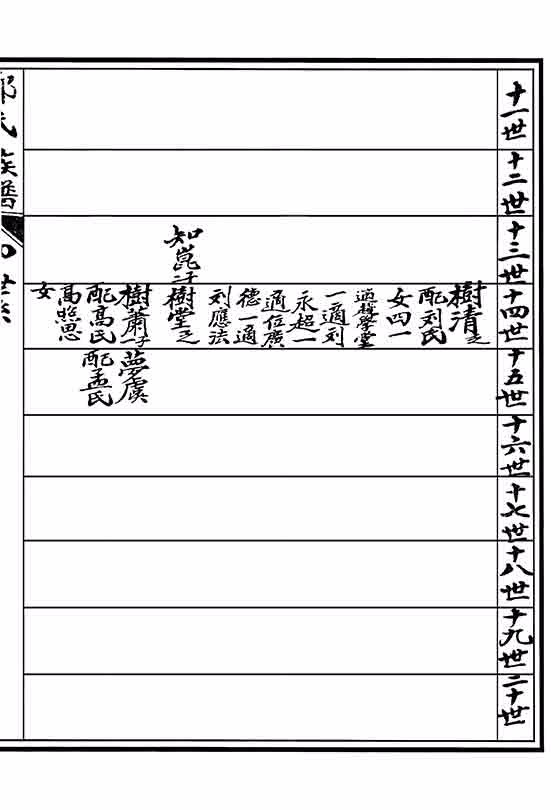 十一世
十二世
十三世
十四世
十五世
十六世
十七世
十八世
十九世
二十世
樹清之
配刘氏
女四一
適趙學堂
一適刘
永超一
適位廣
德一適
刘應法
知崑子
樹堂之
樹蕭子
配高氏
高照思
女
夢虞
配孟氏
氏族譜